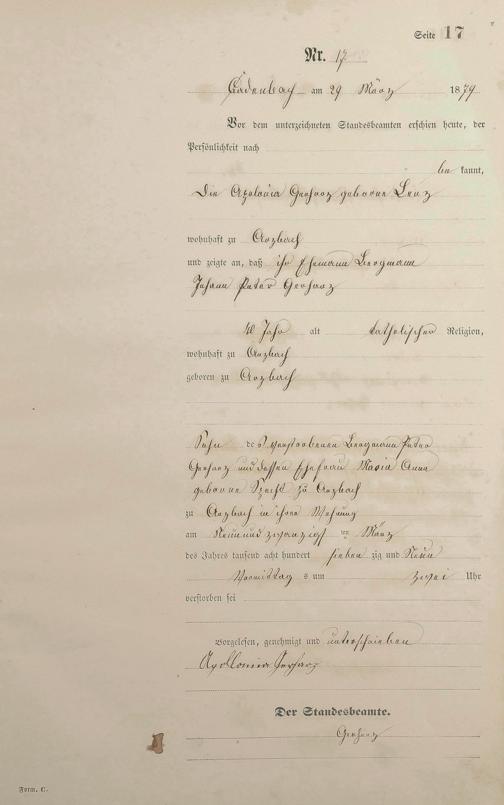 Seite 17
Nr. 17
Cadenbach am 29 März 1879
Vor dem unterzeichneten Standesbeamten erschien heute, der
Persönlichkeit nach
be kannt,
Die Apolonia Gerharz geborne Lenz
wohnhaft zu Arzbach
und zeigte an, daß ihr Ehemann Bergmann
Johann Peter Gerharz
Jahr alt katholischer Religion,
wohnhaft zu Arzbach
geboren zu Arzbach
Sohn des verstorbenen Bergmann Peter
Gerharz und dessen Ehefrau Maria Anna
geborne zu Arzbach
zu Arzbach in ihrer Wohnung
am Neunundzwanzigst en März
des Jahres tausend acht hundert sieben zig und Neun
Vormittag s um zwei Uhr
verstorben sei
Vorgelesen, genehmigt und unterschrieben
Apollonia Gerharz
Der Standesbeamte.
Gerharz
Form. C.